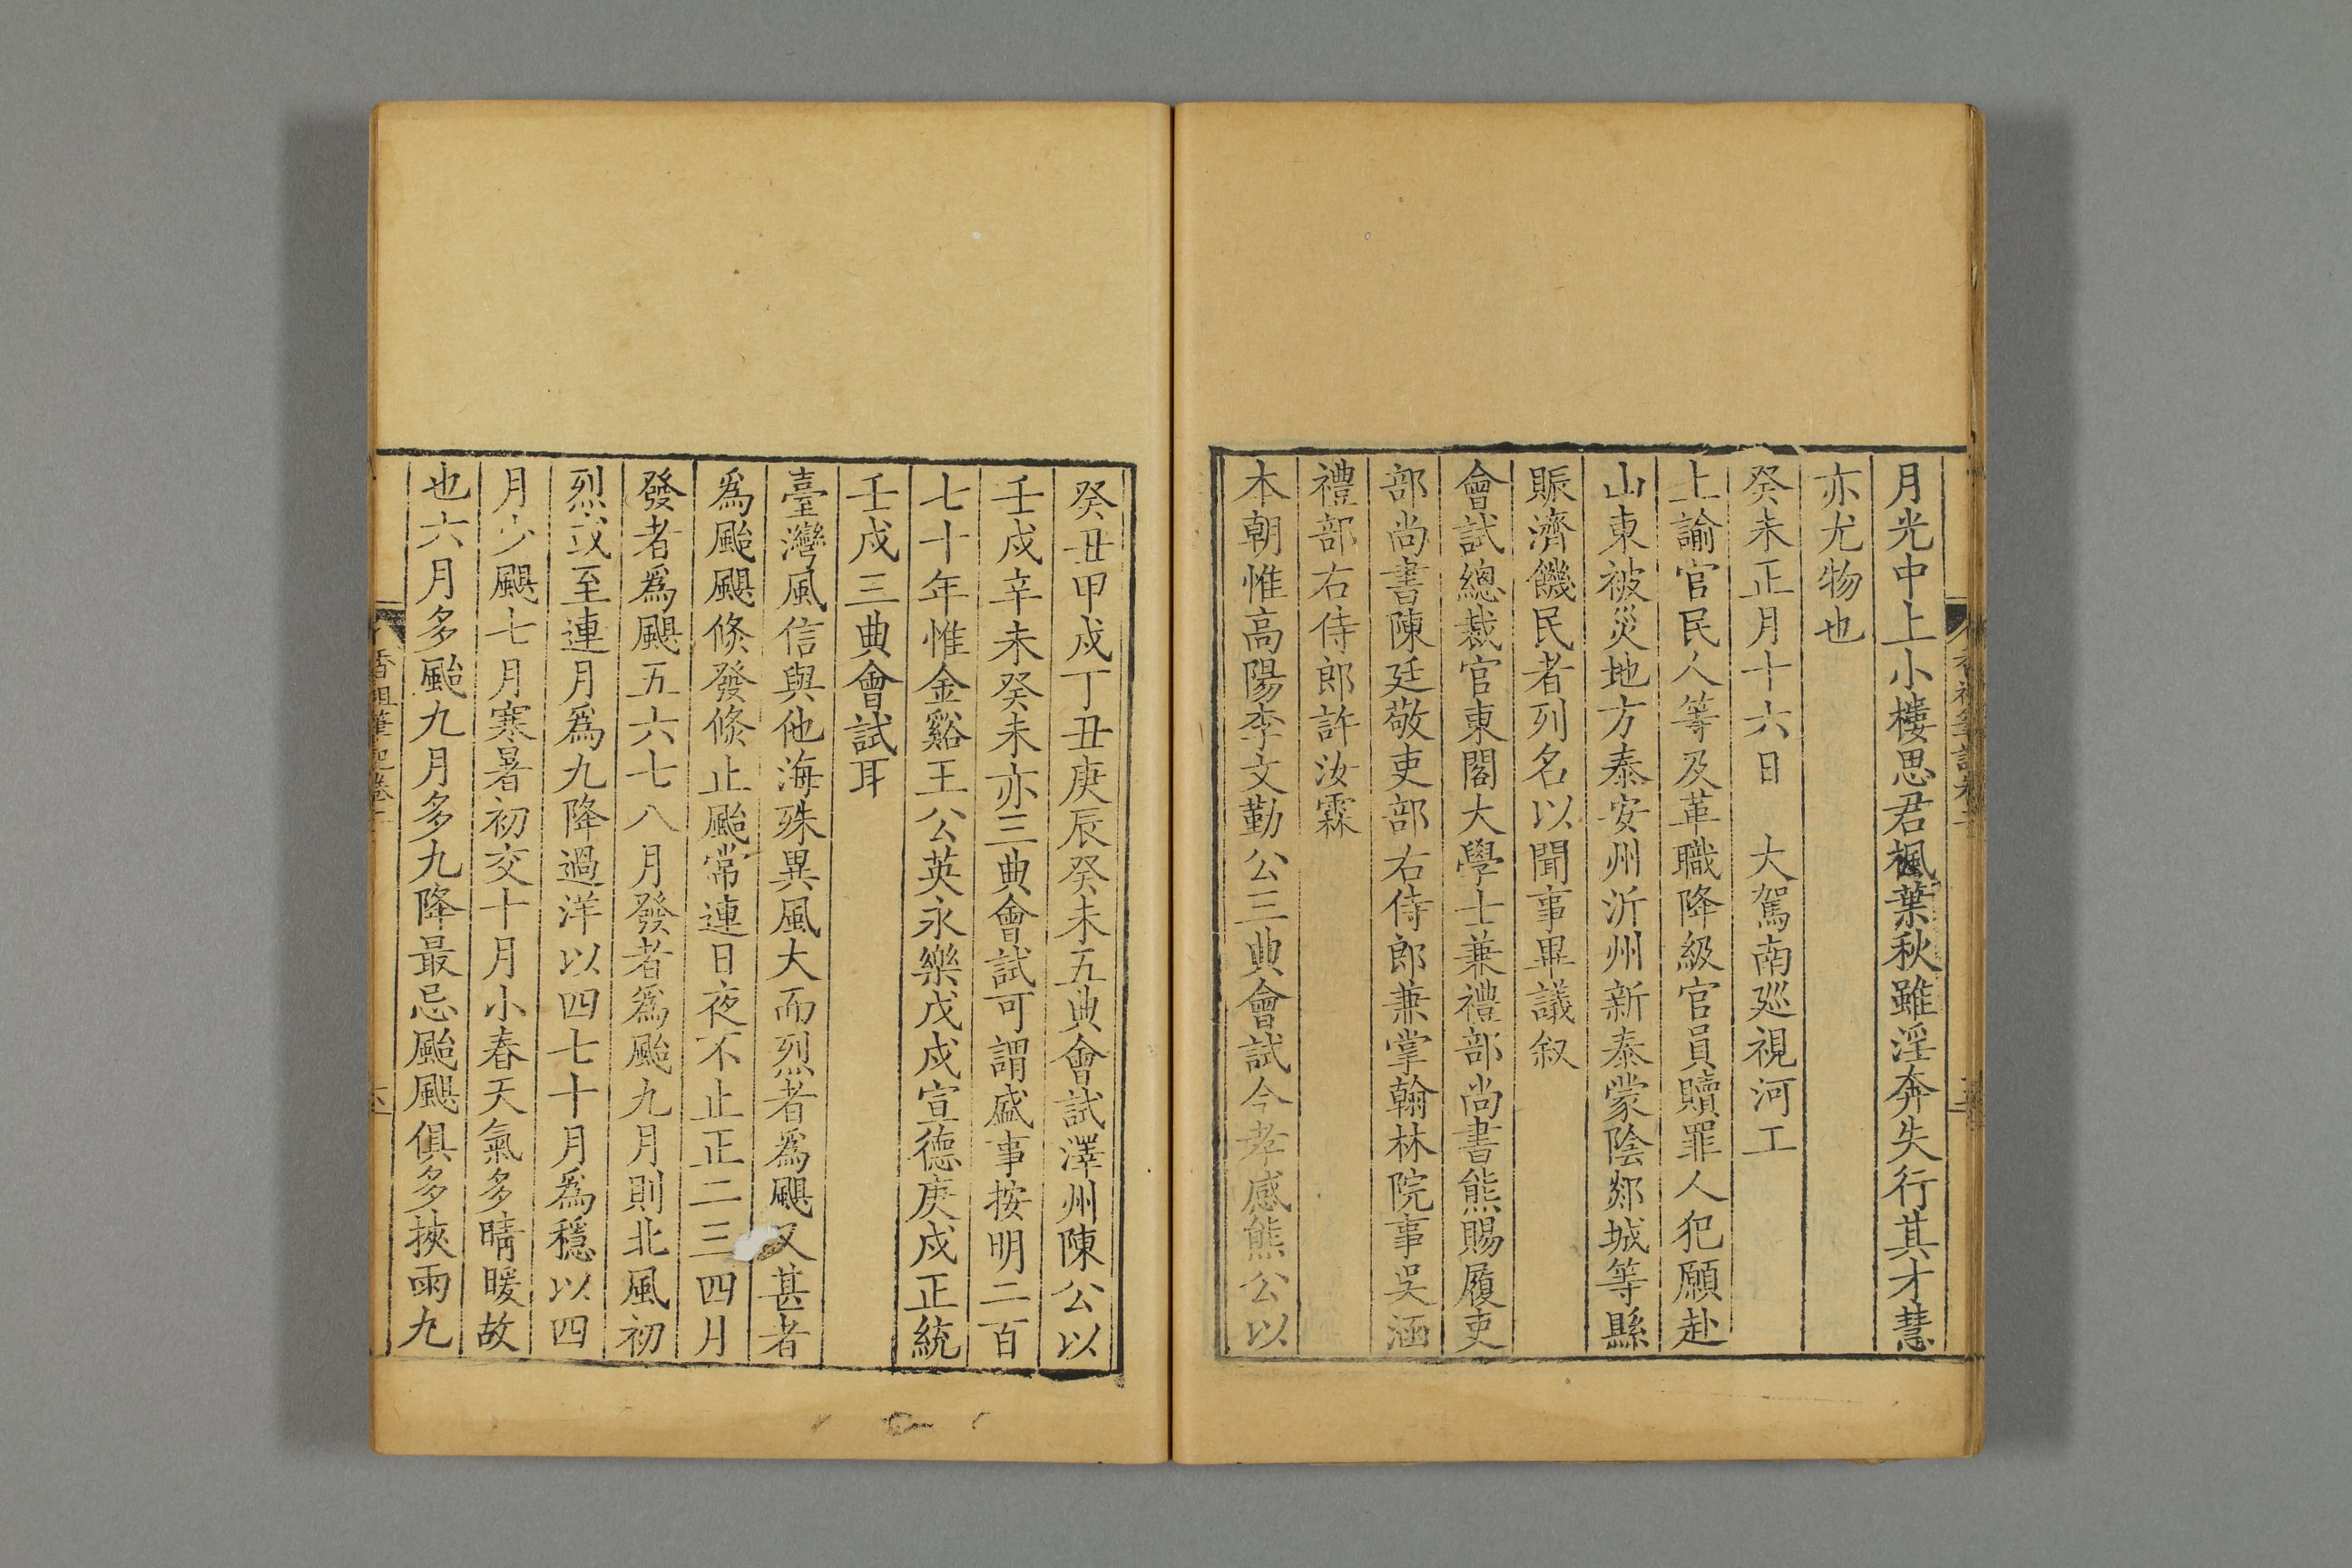 月光中上小樓思君楓葉秋雖淫奔失行其才慧
亦尤物也
癸未正月十六日　大駕南廵視河工
上諭官民人等及革職降級官員贖罪人犯願赴
山東被災地方泰安州沂州新泰蒙陰郯城等縣
賑濟饑民者列名以聞事畢議叙
會試總裁官東閣大學士兼禮部尚書熊賜履吏
部尚書陳廷敬吏部右侍郎兼掌翰林院事吳涵
禮部右侍郎許汝霖
本朝惟高陽李文勤公三典會試今孝感熊公以
癸丑甲戌丁丑庚辰癸未五典會試澤州陳公以
壬戌辛未癸未亦三典會試可謂盛事按明二百
七十年惟金谿王公英永樂戊戌宣德庚戌正統
壬戌三典會試耳
臺灣風信與他海殊異風大而烈者爲颶又甚者
爲颱颶倐發倐止颱常連日夜不止正二三四月
發者爲颶五六七八月發者爲颱九月則北風初
烈或至連月爲九降過洋以四七十月爲穩以四
月少颶七月寒暑初交十月小春天氣多晴暖故
也六月多颱九月多九降最忌颱颶俱多挾雨九
香祖筆記卷二